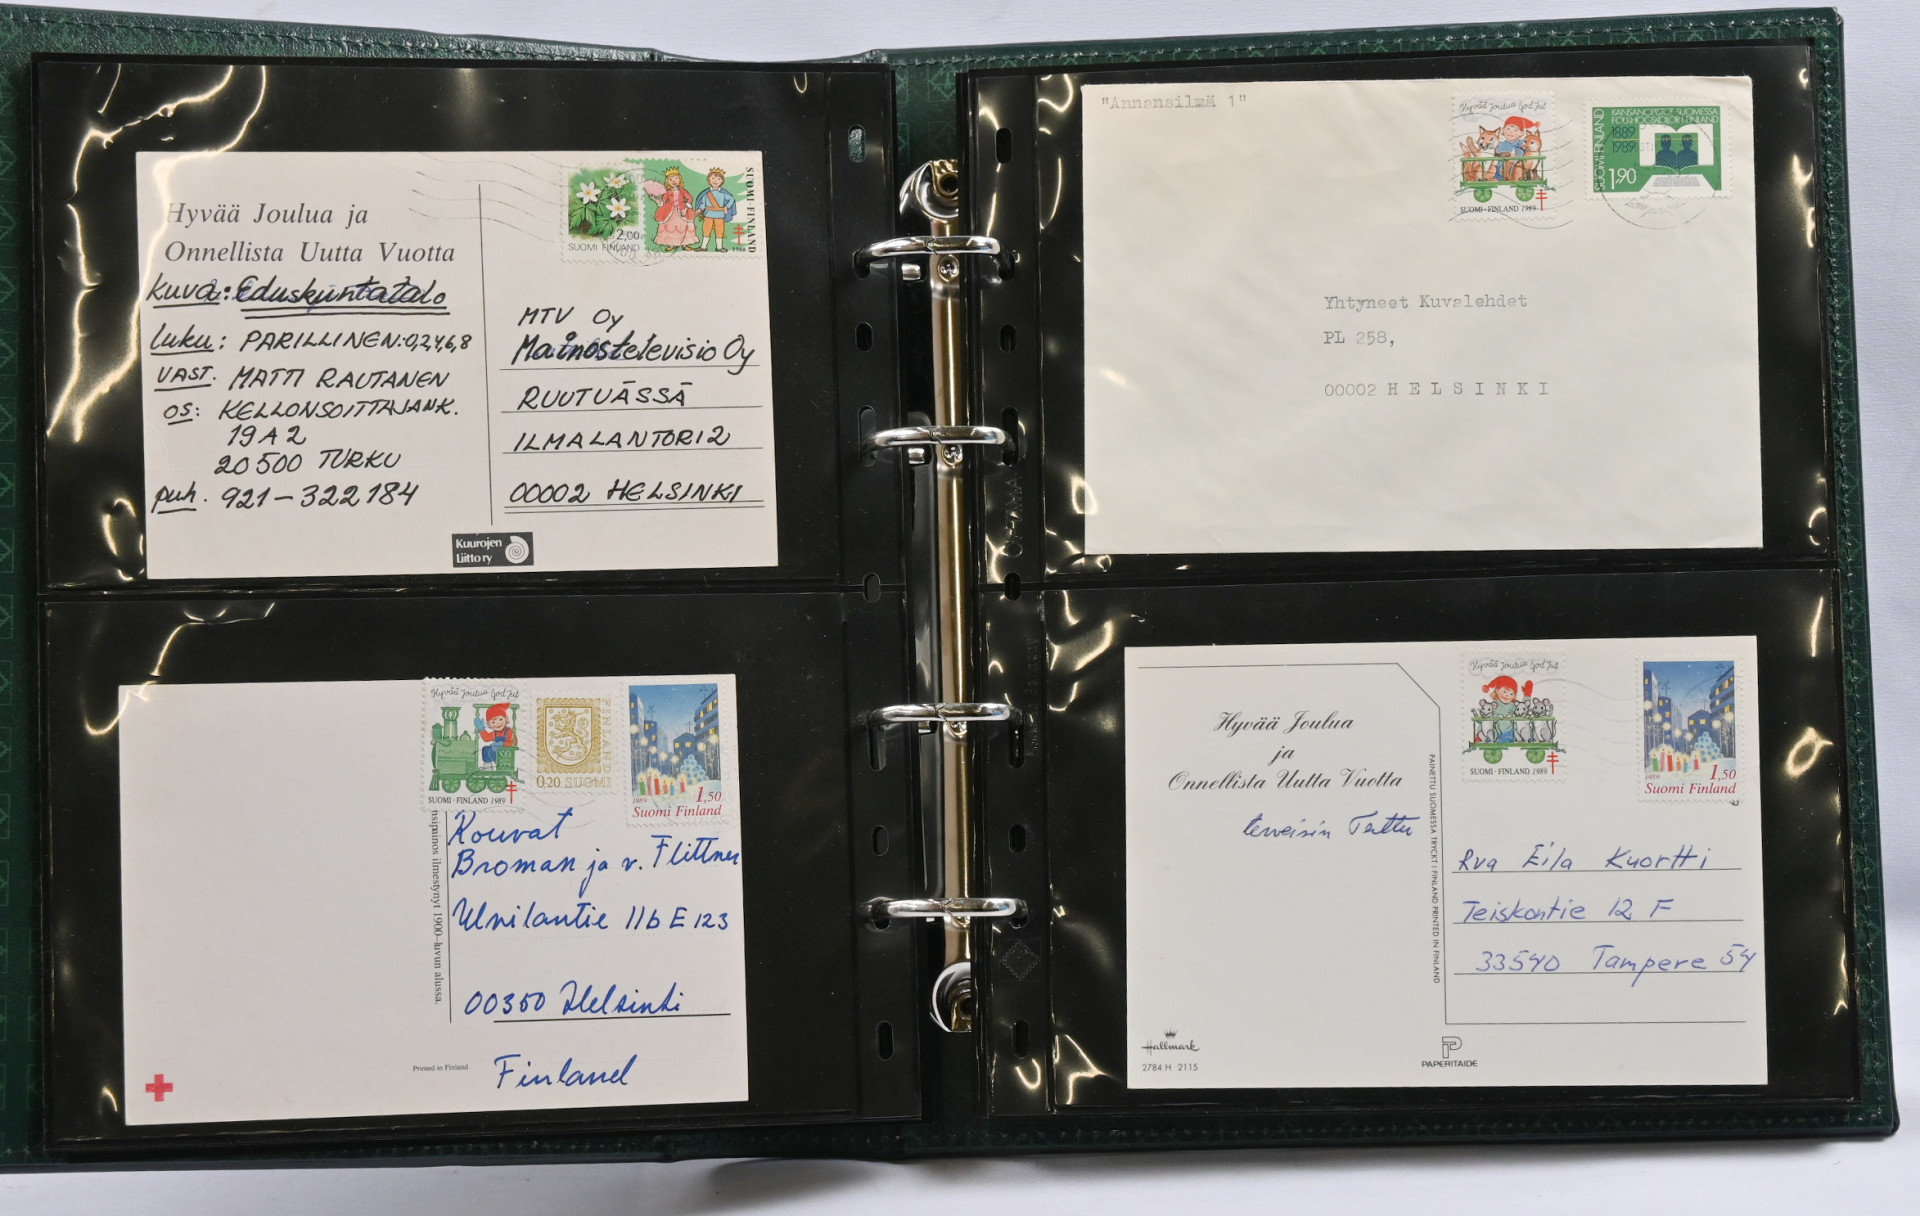 Hyvää Joulua ja
Onnellista Uutta Vuotta
kuva: Eduskuntatalo
luku: PARILLINEN: 0,2,4,6,8
VAST. MATTI RAUTANEN
OS: KELLONSOITTAJANK.
19 A 2
20500 TURKU
puh. 921-322184
2,00
SUOMI FINLAND
SUOMI-FINLAND
MTV Oy
Mainostelevisio Oy
RUUTUÄSSÄ
ILMALANTORI 2
00002 HELSINKI
Kuurojen
Liitto ry
Hyvää Joulua God Jul
SUOMI-FINLAND 1989
FINLAND
0,20 SUOMI
1989 1,50
Suomi Finland
Rouvat
Broman ja v. Flittner
Unilantie 11b E 123
00350 Helsinki
Finland
ilmestynyt 1900-luvun alussa.
Printed in Finland
"Annansilmä 1"
Hyvää Joulua God Jul
SUOMI-FINLAND 1989
KANSANOPISTOT SUOMESSA
FOLKHÖGSKOLOR I FINLAND
SUOMI FINLAND
1889
1989
1,90
Yhtyneet Kuvalehdet
PL 258,
00002 HELSINKI
Hyvää Joulua
ja
Onnellista Uutta Vuotta
terveisin Terttu
Hyvää Joulua God Jul
SUOMI-FINLAND 1989
1989 1,50
Suomi Finland
Rva Eila Kuortti
Teiskontie 12 F
33540 Tampere 54
PAINETTU SUOMESSA TRYCKT I FINLAND PRINTED IN FINLAND
Hallmark
2784 H 2115
PAPERITAIDE